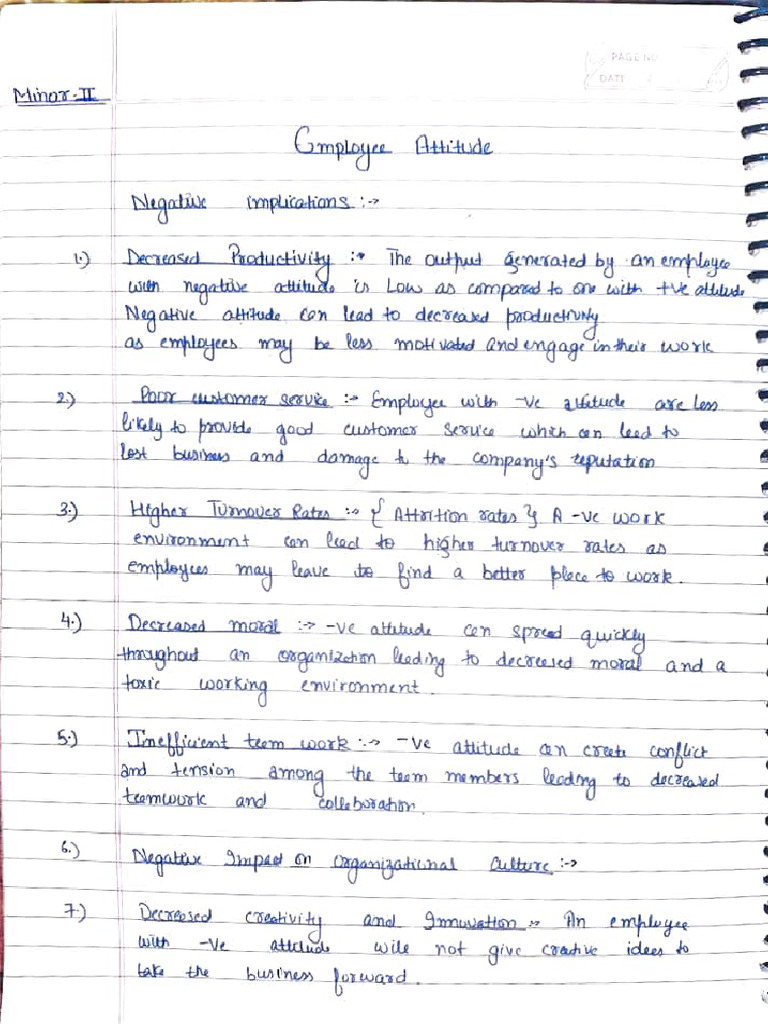 PAGE NO
DATE
Minor-II
Employee Attitude
Negative implications :->
1.) Decreased Productivity :- The output generated by an employee
with negative attitude is Low as compared to one with +ve attitude
Negative attitude can lead to decreased productivity
as employees may be less motivated and engage in their work
2.) Poor customer service :- Employee with -ve attitude are less
likely to provide good customer service which can lead to
lost business and damage to the company's reputation
3.) Higher Turnover Rates :- { Attrition rates } A -ve work
environment can lead to higher turnover rates as
employees may leave to find a better place to work.
4.) Decreased moral :-> -ve attitude can spread quickly
throughout an organization leading to decreased moral and a
toxic working environment.
5.) Inefficient team work :-> -ve attitude can create conflict
and tension among the team members leading to decreased
teamwork and collaboration.
6.) Negative Impact on organizational culture :->
7.) Decreased creativity and Innovation :- An employee
with -ve attitude will not give creative ideas to
take the business forward.